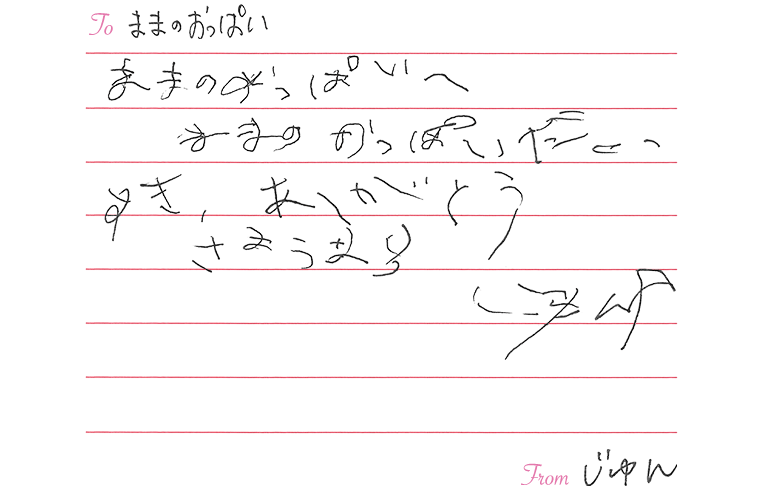 To ままのおっぱい
ままのおっぱいへ
ままのおっぱいだーい
すき、ありがとう
さようなら
じゅんや
From じゅん